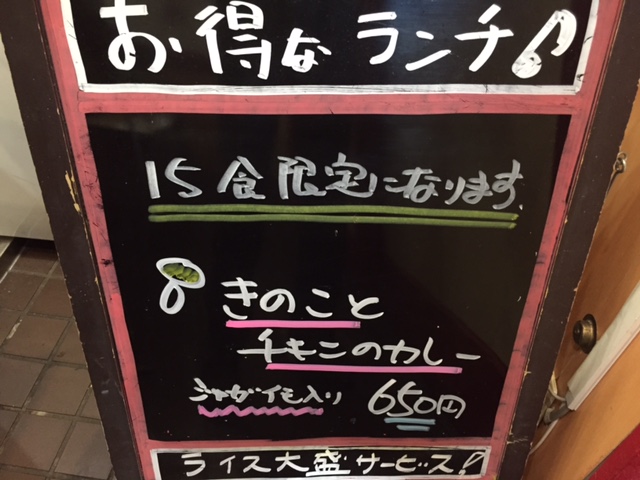 お得なランチ♪
15食限定になります。
きのこと
チキンのカレー
ジャガイモ入り 650円
ライス大盛サービス!